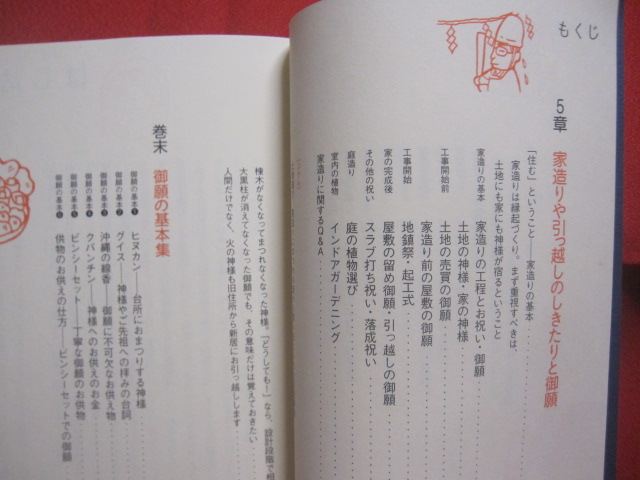 もくじ
5章 家造りや引っ越しのしきたりと御願
「住む」ということ――家造りの基本
家造りは縁起づくり。まず重視すべきは、
土地にも家にも神様が宿るということ
家造りの基本 家造りの工程とお祝い・御願
土地の神様・家の神様
工事開始前 土地の売買の御願
家造り前の屋敷の御願
工事開始 地鎮祭・起工式
家の完成後 屋敷の留め御願・引っ越しの御願
その他の祝い スラブ打ち祝い・落成祝い
庭造り 庭の植物選び
室内の植物 インドアガーデニング
家造りに関するQ&A
棟木がなくなってまつれなくなった神様。「どうしても!」なら、設計段階で相
大黒柱が消えてなくなった御願でも、その意味だけは覚えておきたい
人間だけでなく、火の神様も旧住所から新居にお引っ越しします
巻末 御願の基本集
御願の基本❶ ヒヌカン――台所におまつりする神様
御願の基本❷ グイス――神様やご先祖への拝みの台詞
御願の基本❸ 沖縄の線香――御願に不可欠なお供え物
御願の基本❹ クバンチン――神様へのお供えのお金
御願の基本❺ ビンシーセット――丁寧な御願のお供物
御願の基本❻ 供物のお供えの仕方――ビンシーセットでの御願